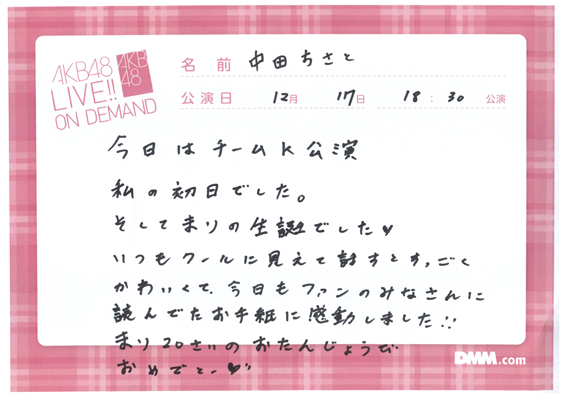 AKB48
LIVE!!
ON DEMAND
AKB
48
名前 中田ちさと
公演日 12月 17日 18:30 公演
今日はチームK公演
私の初日でした。
そしてまりの生誕でした♥
いつもクールに見えて話すとす,ごく
かわいくて、今日もファンのみなさんに
読んでたお手紙に感動しました!!
まり20さいのおたんじょうび
おめでとー♥
DMM.com